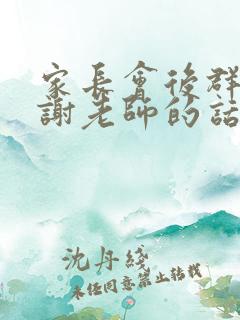 家長會後群
謝老師的話
沈丹綫
未任同意禁止轉載